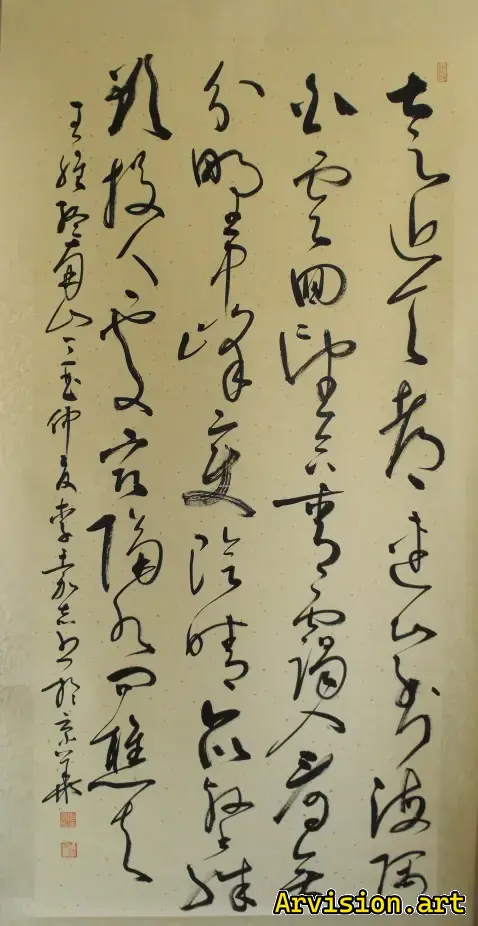 太乙近天都連山到海隅
白雲回望合青靄入看無
分野中峰變陰晴衆壑殊
欲投人處宿隔水問樵夫
王維終南山 仲夏李嘉志书於京華
Arvision.art